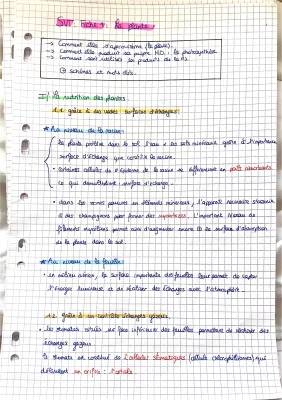 SVT Fiche 1. La plante
→ Comment elle s'approvisionne (la plante).
→ Comment elle produit sa propre M.O : la photosynthèse
→ Comment sont utilisés les produits de la
+ schémas et mots clés.
I/. La nutrition des plantes
1.1 grâce à de vastes surfaces d'échanges.
★ Au niveau de la racine:
la plante prélève dans le sol l'eau & les sels minéraux grâce à l'importante
surface d'échange que constitue la racine.
• certaines cellules de l'épiderme de la racine se différencient en poils absorbants
ce qui démultiplie surface d'échange.
• dans les zones pauvres en éléments minéraux, l'appareil racinaire s'associe
à des champignons pour former des mycorhizes. L'important réseau de
filaments mycéliens permet ainsi d'augmenter encore la surface d'absorption
de la plante dans le sol.
★ Au niveau de la feuille:
• en milieu aérien, la surface importante des feuilles leur permet de capter
l'énergie lumineuse et de réaliser des échanges avec l'atmosphère.
1.2 grâce à un contrôle échanges gazeux.
• les stomates situés sur face inférieure des feuilles permettent de réaliser des
échanges gazeux
le stomate est constitué de 2 cellules stomatiques (cellules chlorophylliennes) qui
délimitent un orifice : l'ostiole